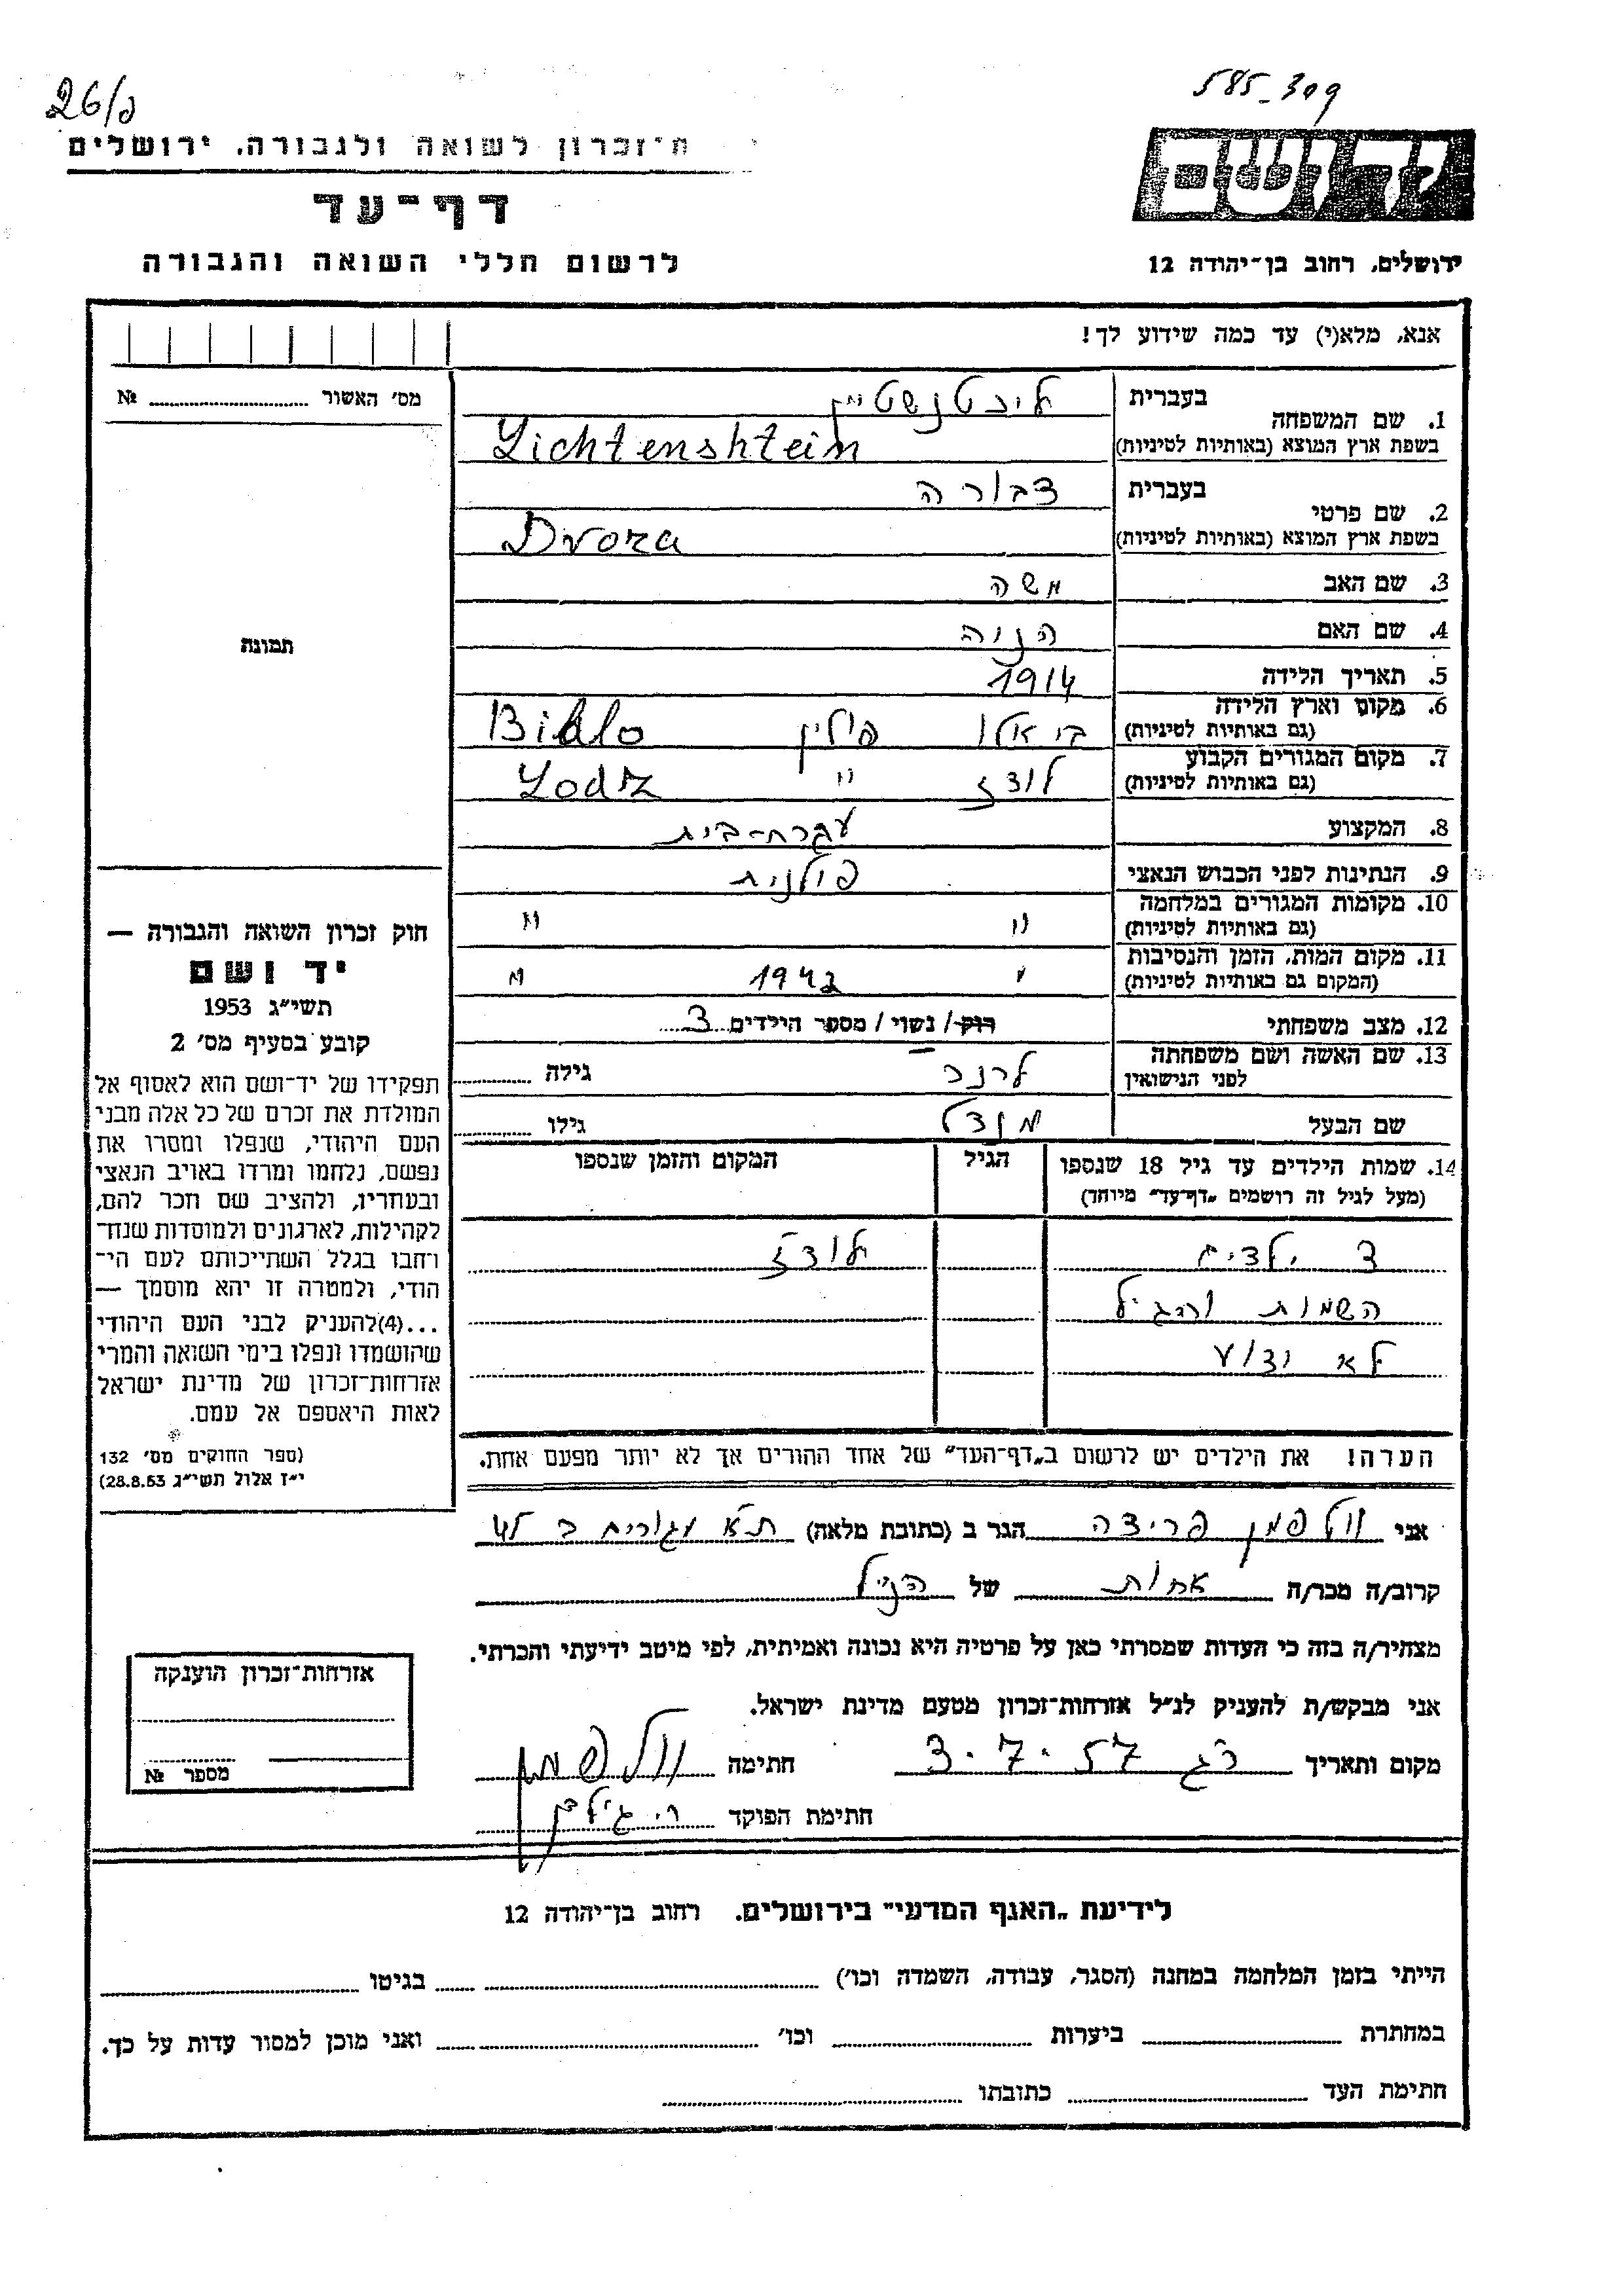 26/פ
585-309
ת־זכרון לשואה ולגבורה. ירושלים
דף־עד
לרשום חללי השואה והגבורה
יד ושם
ירושלים, רחוב בן־יהודה 12
אנא, מלא(י) עד כמה שידוע לך!
מס' האשור № 
1. שם המשפחה
בעברית ליכטנשטיין
בשפת ארץ המוצא (באותיות לטיניות) Lichtenshtein
2. שם פרטי
בעברית דבורה
בשפת ארץ המוצא (באותיות לטיניות) Dvora
3. שם האב משה
4. שם האם הניה
5. תאריך הלידה 1914
6. מקום וארץ הלידה ביאלו פולין Bialo
(גם באותיות לטיניות)
7. מקום המגורים הקבוע לודז " Lodz
(גם באותיות לטיניות)
8. המקצוע עקרת-בית
9. הנתינות לפני הכבוש הנאצי פולנית
10. מקומות המגורים במלחמה " "
(גם באותיות לטיניות)
11. מקום המות, הזמן והנסיבות " 1942 "
(המקום גם באותיות לטיניות)
12. מצב משפחתי רוק/ נשוי/ מספר הילדים 3
13. שם האשה ושם משפחתה לרנר גילה
לפני הנישואין
שם הבעל מנדל גילו
14. שמות הילדים עד גיל 18 שנספו הגיל המקום והזמן שנספו
(מעל לגיל זה רושמים „דף־עד" מיוחד)
3 ילדים לודז
השמות והגיל
לא ידוע
הערה! את הילדים יש לרשום ב„דף־העד" של אחד ההורים אך לא יותר מפעם אחת.
תמונה
חוק זכרון השואה והגבורה —
יד ושם
תשי"ג 1953
קובע בסעיף מס' 2
תפקידו של יד־ושם הוא לאסוף אל
המולדת את זכרם של כל אלה מבני
העם היהודי, שנפלו ומסרו את
נפשם, נלחמו ומרדו באויב הנאצי
ובעוזריו, ולהציב שם וזכר להם,
לקהילות, לארגונים ולמוסדות שנח־
רחבו בגלל השתייכותם לעם הי־
הודי, ולמטרה זו יהא מוסמך —
...(4)להעניק לבני העם היהודי
שהושמדו ונפלו בימי השואה והמרי
אזרחות־זכרון של מדינת ישראל
לאות היאספם אל עמם.
(ספר החוקים מס' 132
י"ז אלול תשי"ג 28.8.53)
אני וולפמן פרידה הגר ב (כתובת מלאה) ת"א מגורים ב
קרוב/ה מכר/ה אחות של הנ"ל
מצהיר/ה בזה כי העדות שמסרתי כאן על פרטיה היא נכונה ואמיתית, לפי מיטב ידיעתי והכרתי.
אני מבקש/ת להעניק לנ"ל אזרחות־זכרון מטעם מדינת ישראל.
מקום ותאריך רג 3.7.57 חתימה וולפמן
חתימת הפוקד
אזרחות־זכרון הוענקה
מספר №
לידיעת „האגף המדעי" בירושלים. רחוב בן־יהודה 12
הייתי בזמן המלחמה במחנה (הסגר, עבודה, השמדה וכו') בגיטו
במחתרת ביערות וכו' ואני מוכן למסור עדות על כך.
חתימת העד כתובתו